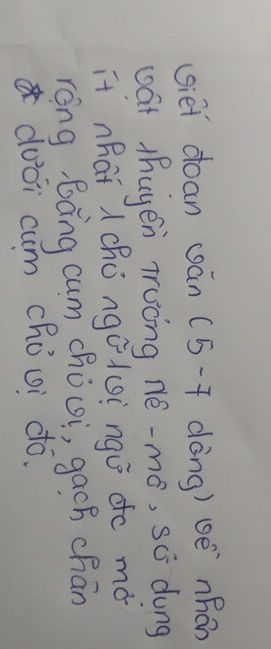 viết đoạn văn (5-7 dòng) về nhân
vật thuyền trưởng Nê-mô, sử dụng
ít nhất 1 chủ ngữ/vị ngữ đc mở
rộng bằng cụm chủ vị, gạch chân
dưới cụm chủ vị đó.